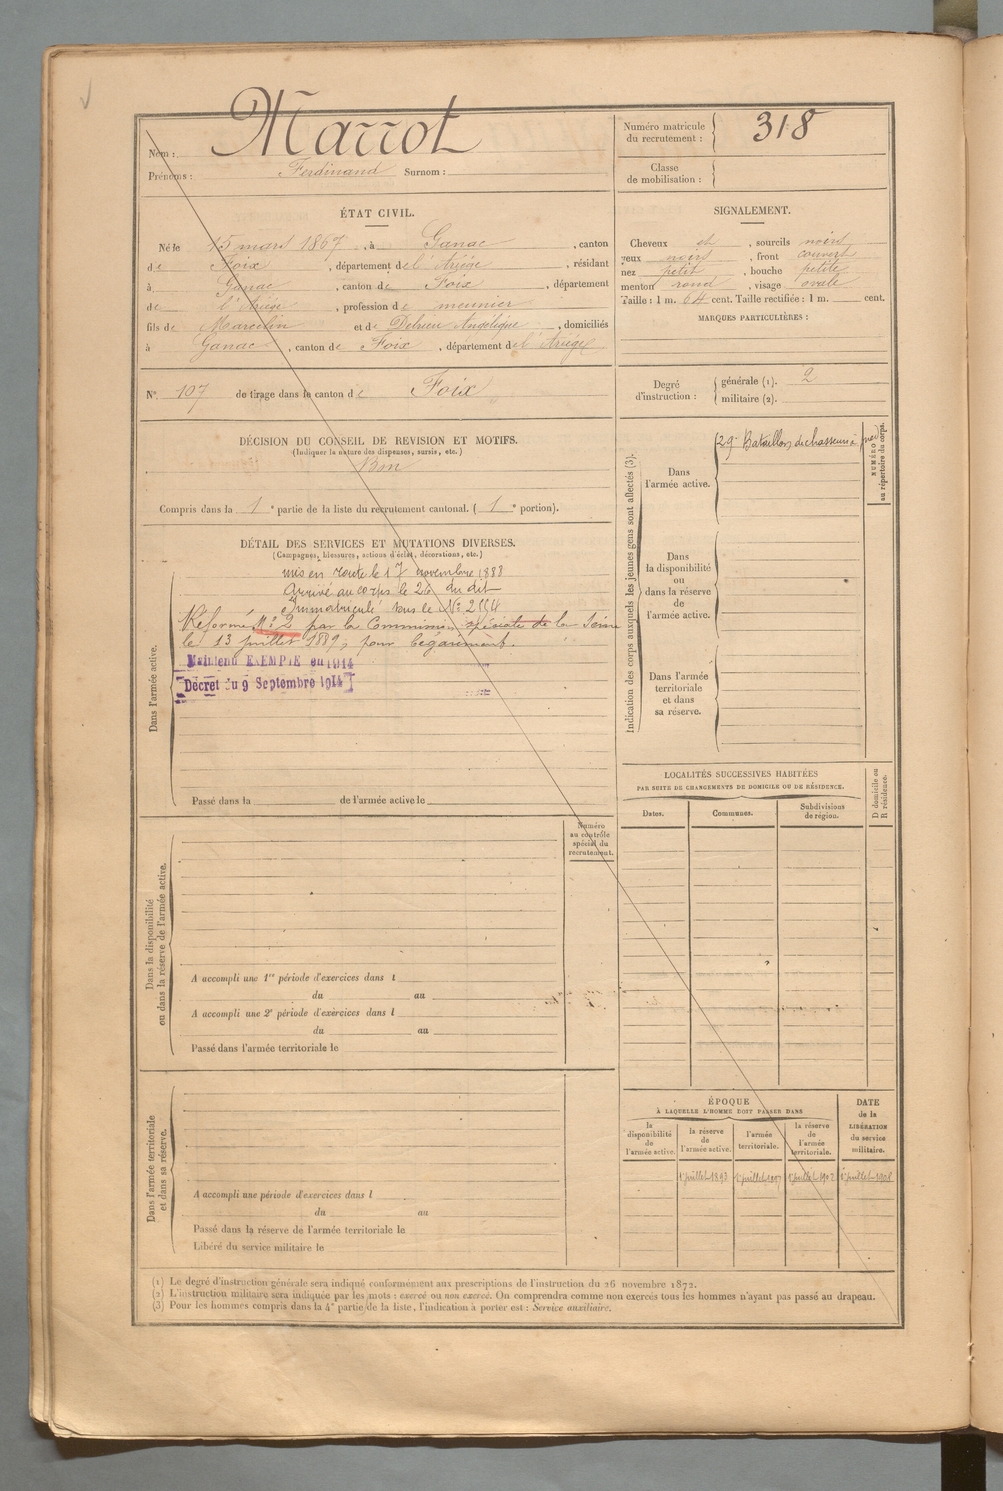 Nom : Marrot
Prénoms : Ferdinand Surnom :
Numéro matricule du recrutement : 318
Classe de mobilisation :
ÉTAT CIVIL.
Né le 15 mars 1867, à Ganac, canton
de Foix, département de l'Ariège, résidant
à Ganac, canton de Foix, département
de l'Ariège, profession de meunier
fils de Marcelin et de Delrieu Angélique, domiciliés
à Ganac, canton de Foix, département de l'Ariège
N° 107 de tirage dans le canton de Foix
DÉCISION DU CONSEIL DE REVISION ET MOTIFS.
(Indiquer la nature des dispenses, sursis, etc.)
Bon
Compris dans la 1e partie de la liste du recrutement cantonal. ( 1e portion).
SIGNALEMENT.
Cheveux et, sourcils noirs
yeux noirs, front couvert
nez petit, bouche petite
menton rond, visage ovale
Taille : 1 m. 64 cent. Taille rectifiée : 1 m. cent.
MARQUES PARTICULIÈRES :
Degré d'instruction :
générale (1). 2
militaire (2).
DÉTAIL DES SERVICES ET MUTATIONS DIVERSES.
(Campagnes, blessures, actions d'éclat, décorations, etc.)
Dans l'armée active.
mis en route le 17 novembre 1888
Arrivé au corps le 20 du dit
Immatriculé sous le N°
Réformé N° 2 par la Commission spéciale de la Seine
le 13 juillet 1889, pour bégaiement.
Maintenu EXEMPTE en 1914
Décret du 9 Septembre 1914
Passé dans la de l'armée active le
Indication des corps auxquels les jeunes gens sont affectés (3).
Dans l'armée active.
29e Bataillon de chasseurs à pied
NUMÉRO au répertoire du corps.
Dans la disponibilité ou dans la réserve de l'armée active.
Dans l'armée territoriale et dans sa réserve.
LOCALITÉS SUCCESSIVES HABITÉES
PAR SUITE DE CHANGEMENTS DE DOMICILE OU DE RÉSIDENCE.
Dates. Communes. Subdivisions de région.
D domicile ou R résidence.
Numéro au contrôle spécial du recrutement.
Dans la disponibilité ou dans la réserve de l'armée active.
A accompli une 1re période d'exercices dans l
du au
A accompli une 2e période d'exercices dans l
du au
Passé dans l'armée territoriale le
Dans l'armée territoriale et dans sa réserve.
A accompli une période d'exercices dans l
du au
Passé dans la réserve de l'armée territoriale le
Libéré du service militaire le
ÉPOQUE
À LAQUELLE L'HOMME DOIT PASSER DANS
la disponibilité de l'armée active.
la réserve de l'armée active.
l'armée territoriale.
la réserve de l'armée territoriale.
DATE de la LIBÉRATION du service militaire.
1r juillet 1893 1r juillet 1r juillet 1902 1r juillet 1908
(1) Le degré d'instruction générale sera indiqué conformément aux prescriptions de l'instruction du 26 novembre 1872.
(2) L'instruction militaire sera indiquée par les mots : exercé ou non exercé. On comprendra comme non exercés tous les hommes n'ayant pas passé au drapeau.
(3) Pour les hommes compris dans la 4e partie de la liste, l'indication à porter est : Service auxiliaire.